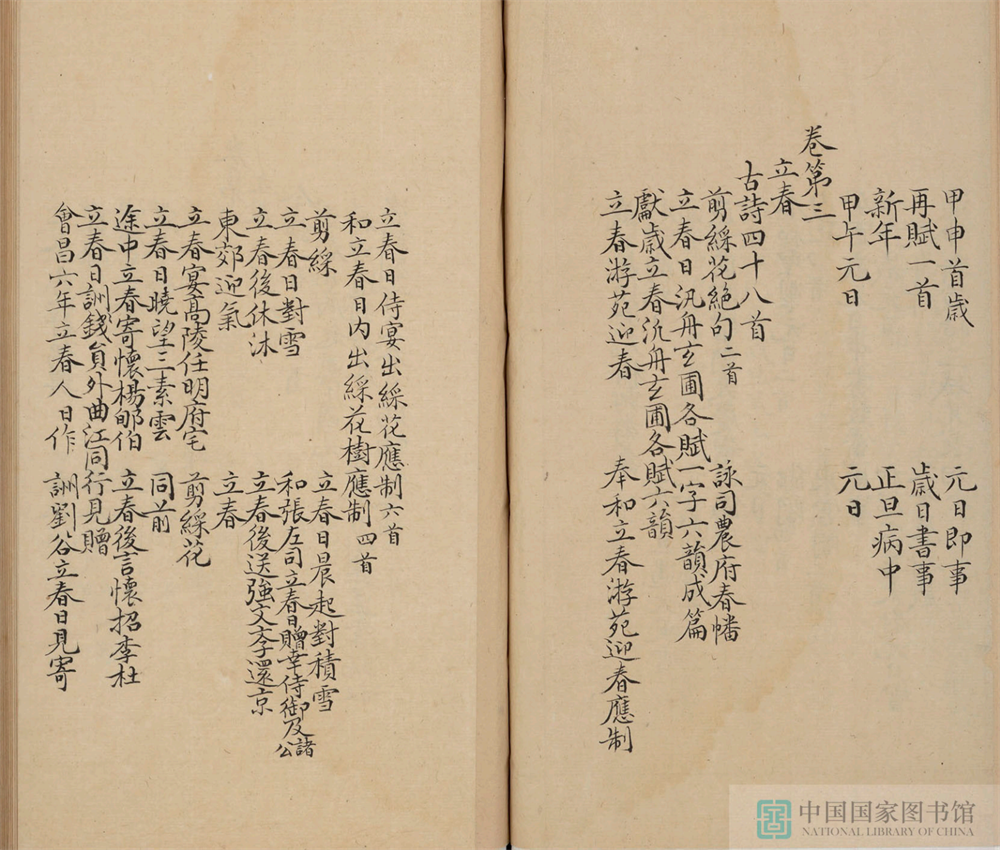 甲申首歲　元日即事
再賦一首　歲日書事
新年　正旦病中
甲午元日　元日
卷第三
立春
古詩四十八首
剪綵花絶句二首　詠司農府春幡
立春日汎舟玄圃各賦一字六韻成篇
獻歲立春汎舟玄圃各賦六韻
立春游苑迎春　奉和立春游苑迎春應制
立春日侍宴出綵花應制六首
和立春日内出綵花樹應制四首
剪綵　立春日晨起對積雪
立春日對雪　和張左司立春日贈韋侍御及諸公
立春後休沐　立春後送強文季還京
東郊迎氣　立春
立春宴高陵任明府宅　剪綵花
立春日曉望三素雲　同前
途中立春寄懷楊郇伯　立春後言懷招李杜
立春日訓錢員外曲江同行見贈
會昌六年立春人日作　訓劉谷立春日見寄
中国国家图书馆
NATIONAL LIBRARY OF CHINA